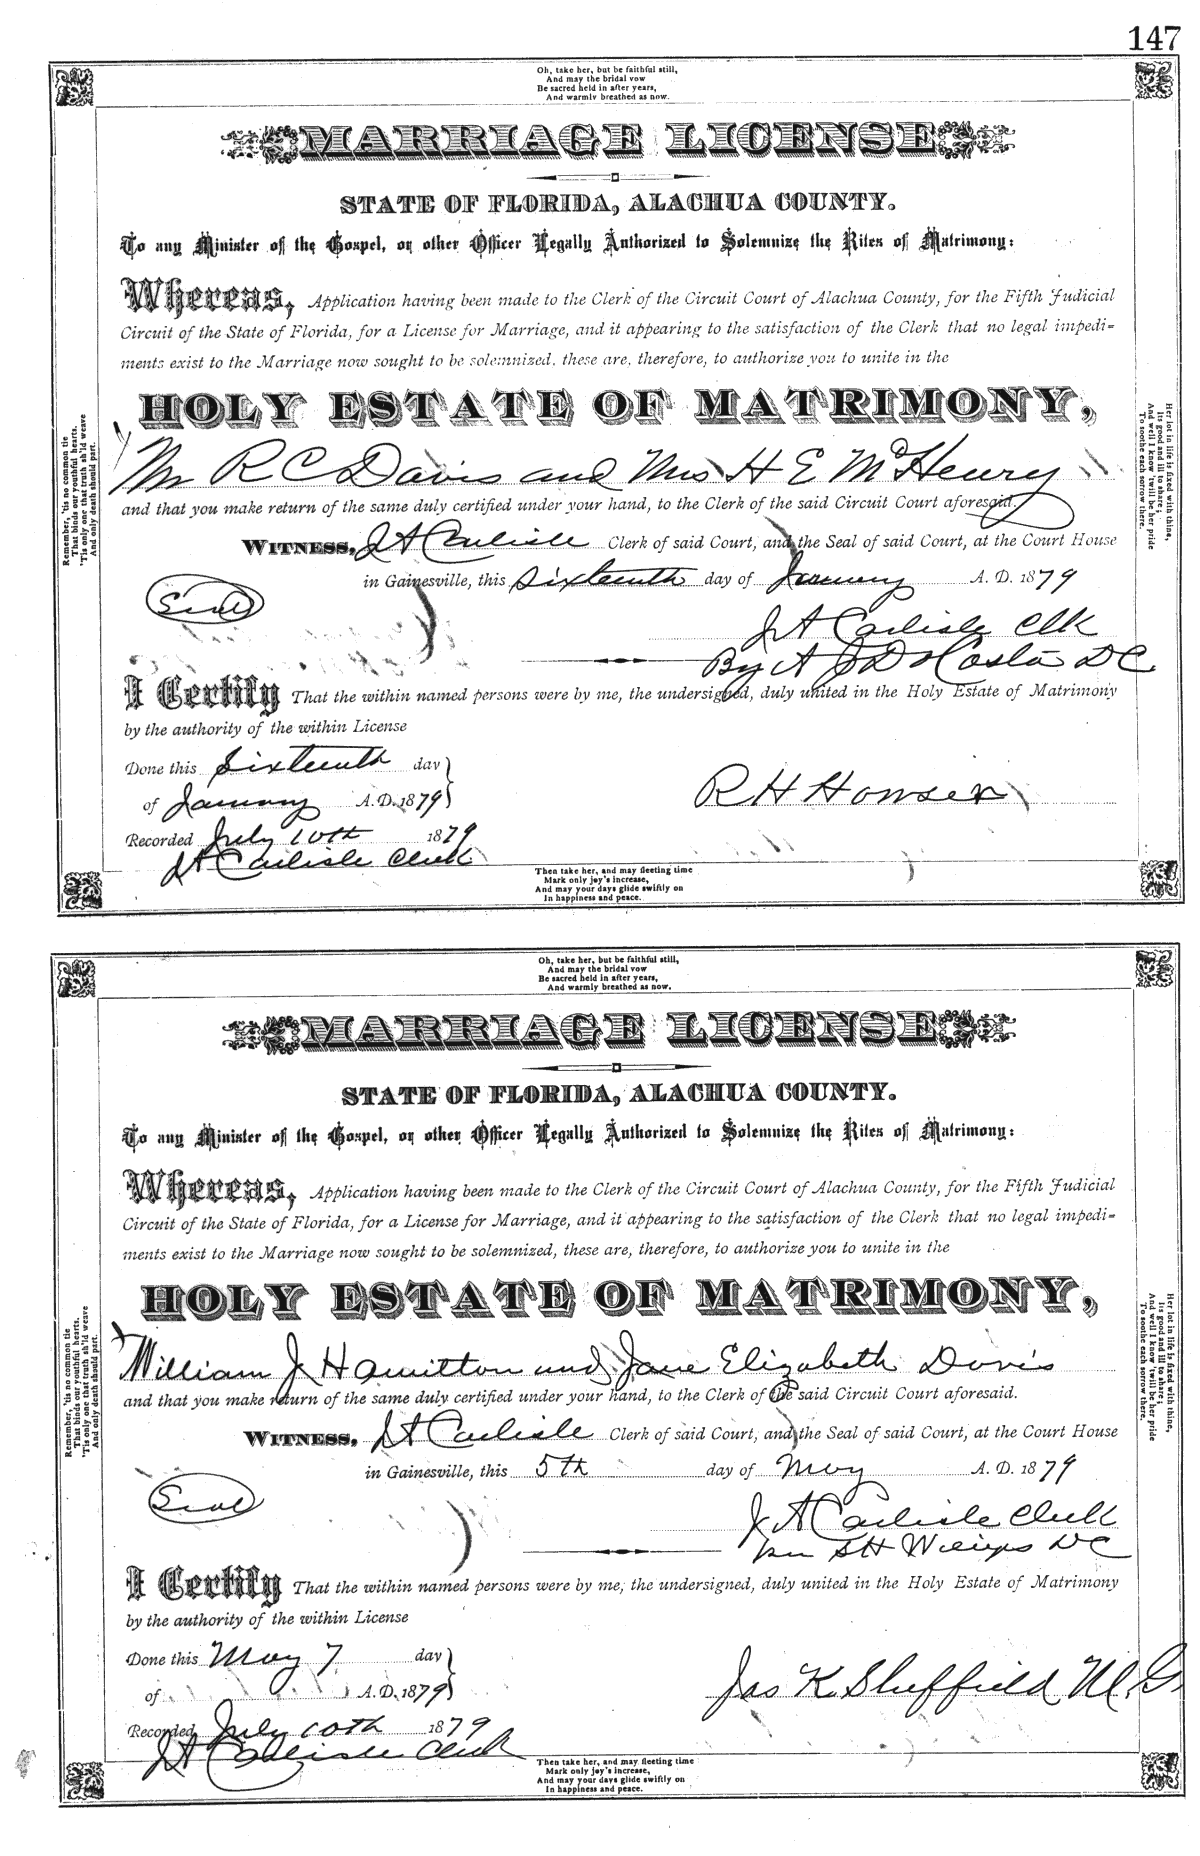 147
Oh, take her, but be faithful still,
And may the bridal vow
Be sacred held in after years,
And warmly breathed as now.
MARRIAGE LICENSE
STATE OF FLORIDA, ALACHUA COUNTY.
To any Minister of the Gospel, or other Officer Legally Authorized to Solemnize the Rites of Matrimony:
Whereas, Application having been made to the Clerk of the Circuit Court of Alachua County, for the Fifth Judicial
Circuit of the State of Florida, for a License for Marriage, and it appearing to the satisfaction of the Clerk that no legal impedi-
ments exist to the Marriage now sought to be solemnized, these are, therefore, to authorize you to unite in the
HOLY ESTATE OF MATRIMONY,
Mr R C Davis and Mrs H E McHenry
and that you make return of the same duly certified under your hand, to the Clerk of the said Circuit Court aforesaid.
WITNESS, J A Carlisle Clerk of said Court, and the Seal of said Court, at the Court House
in Gainesville, this Sixteenth day of January A. D. 1879
Seal
J A Carlisle Clk
By A J DaCosta DC
I Certify That the within named persons were by me, the undersigned, duly united in the Holy Estate of Matrimony
by the authority of the within License
Done this Sixteenth day
of January A.D. 1879
R H Howser
Recorded July 10th 1879
J A Carlisle Clerk
Then take her, and may fleeting time
Mark only joy's increase,
And may your days glide swiftly on
In happiness and peace.
Remember, 'tis no common tie
That binds our youthful hearts,
'Tis only one that truth sh'ld weave
And only death should part.
Her lot in life is fixed with thine,
Its good and ill to share;
And well I know 'twill be her pride
To soothe each sorrow there.
Oh, take her, but be faithful still,
And may the bridal vow
Be sacred held in after years,
And warmly breathed as now.
MARRIAGE LICENSE
STATE OF FLORIDA, ALACHUA COUNTY.
To any Minister of the Gospel, or other Officer Legally Authorized to Solemnize the Rites of Matrimony:
Whereas, Application having been made to the Clerk of the Circuit Court of Alachua County, for the Fifth Judicial
Circuit of the State of Florida, for a License for Marriage, and it appearing to the satisfaction of the Clerk that no legal impedi-
ments exist to the Marriage now sought to be solemnized, these are, therefore, to authorize you to unite in the
HOLY ESTATE OF MATRIMONY,
William J Hamilton and Jane Elizabeth Davis
and that you make return of the same duly certified under your hand, to the Clerk of the said Circuit Court aforesaid.
WITNESS, J A Carlisle Clerk of said Court, and the Seal of said Court, at the Court House
in Gainesville, this 5th day of May A. D. 1879
Seal
J A Carlisle Clerk
per S H DC
I Certify That the within named persons were by me, the undersigned, duly united in the Holy Estate of Matrimony
by the authority of the within License
Done this May 7 day
of A.D. 1879
Jas K Sheffield M.G.
Recorded July 10th 1879
J A Carlisle Clerk
Then take her, and may fleeting time
Mark only joy's increase,
And may your days glide swiftly on
In happiness and peace.
Remember, 'tis no common tie
That binds our youthful hearts,
'Tis only one that truth sh'ld weave
And only death should part.
Her lot in life is fixed with thine,
Its good and ill to share;
And well I know 'twill be her pride
To soothe each sorrow there.